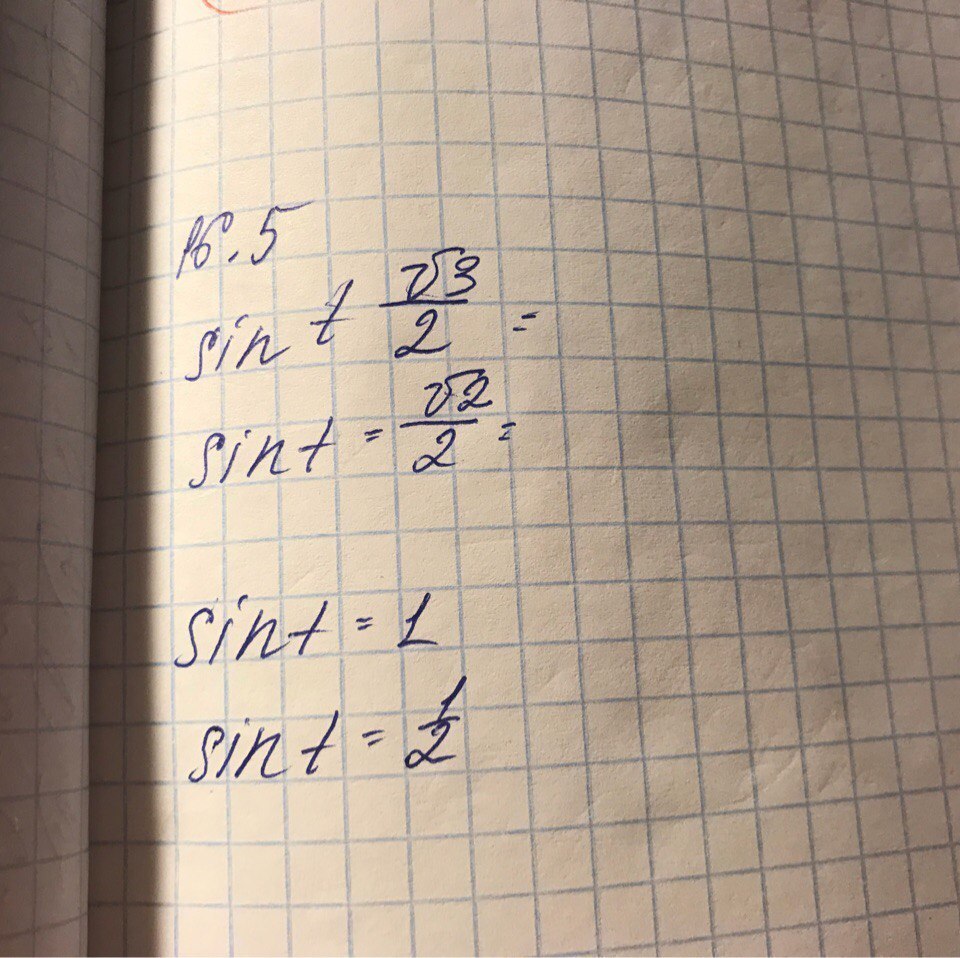 16.5
sin t √3/2 =
sin t = √2/2 =
sin t = 1
sin t = 1/2